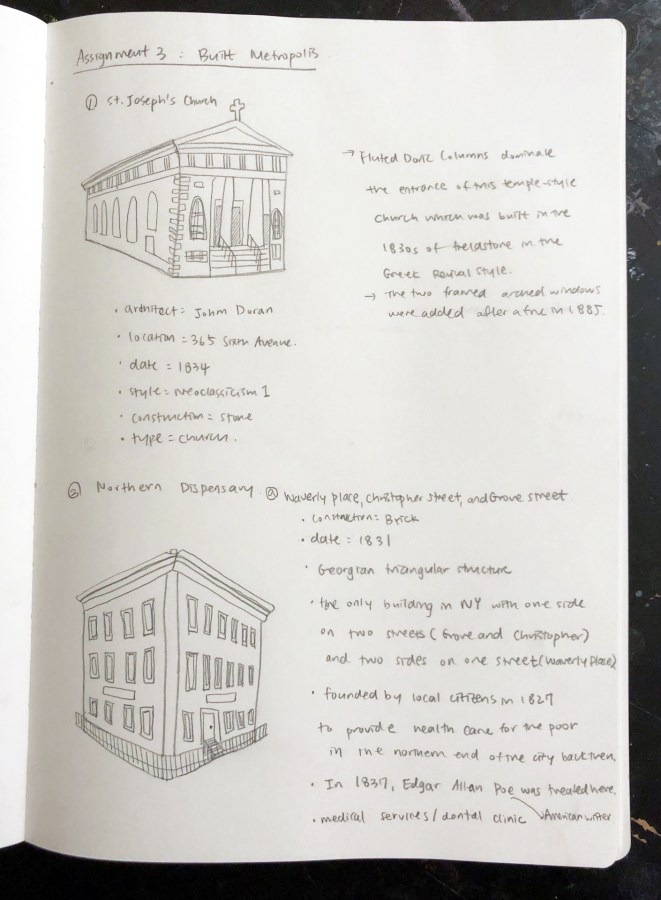 Assignment 3 : Built Metropolis
① St. Joseph's Church
→ Fluted Doric Columns dominate
the entrance of this temple-style
church which was built in the
1830s of fieldstone in the
Greek Revival style.
→ The two framed arched windows
were added after a fire in 1885.
• architect = John Duran
• location = 365 Sixth Avenue.
• date = 1834
• style = neoclassicism 1
• construction = stone
• type = church.
② Northern Dispensary @ Waverly place, Christopher street, and Grove street
• construction = Brick
• date = 1831
• Georgian triangular structure
• the only building in NY with one side
on two streets (Grove and Christopher)
and two sides on one street (Waverly Place)
• founded by local citizens in 1827
to provide health care for the poor
in the northern end of the city back then.
• In 1837, Edgar Allan Poe was treated here.
• medical services / dental clinic
American writer